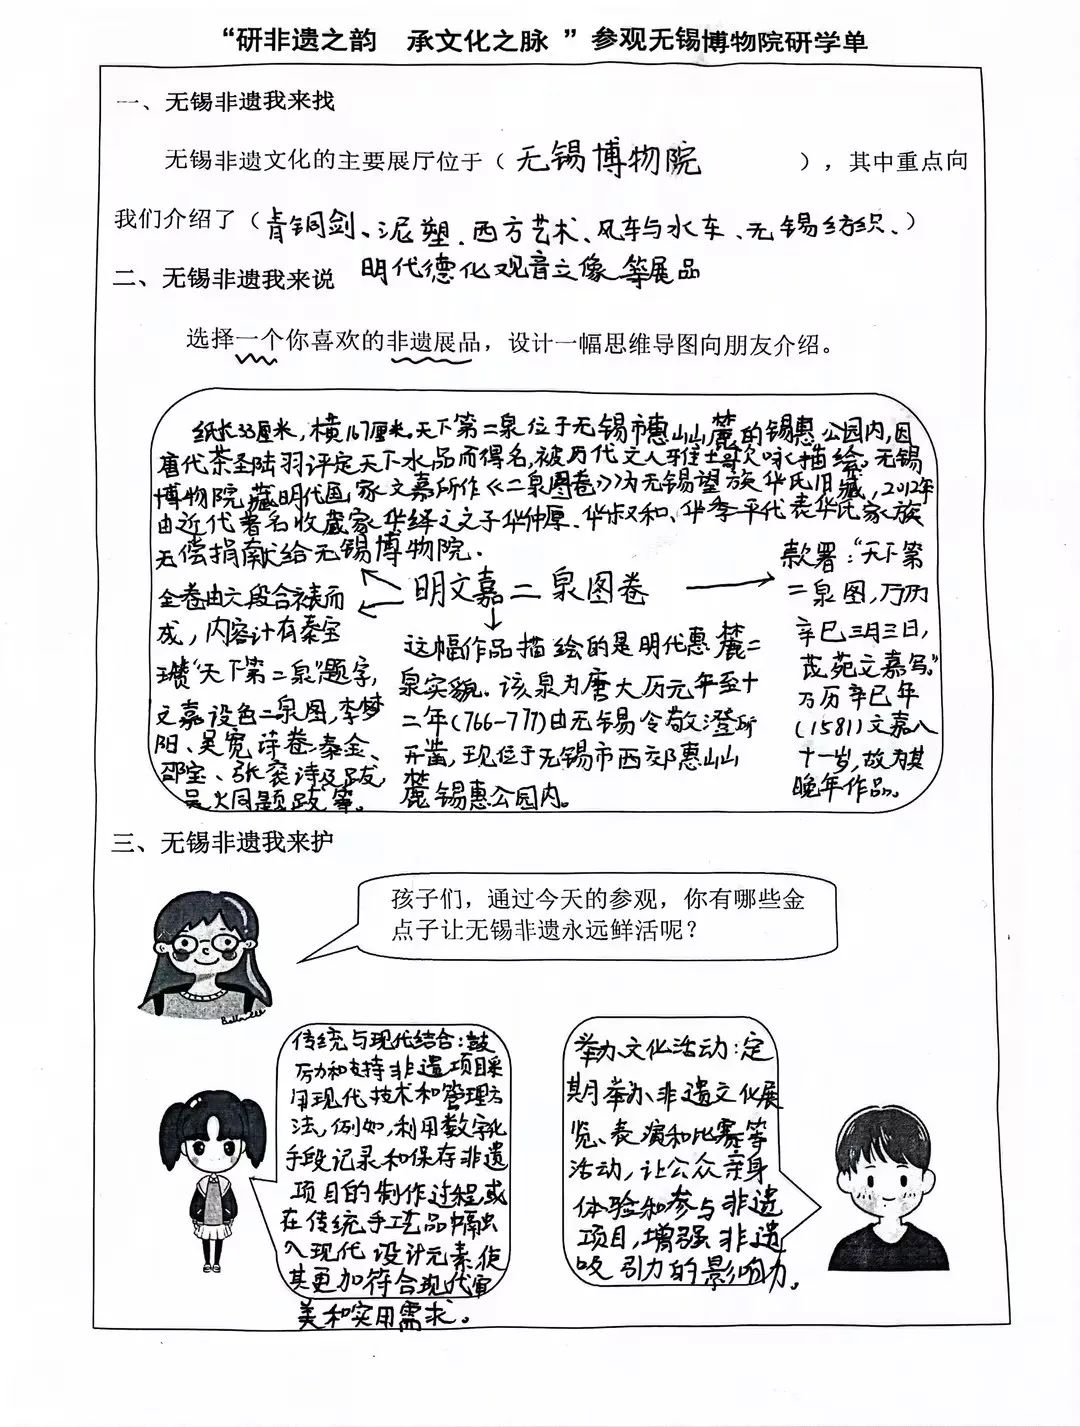 “研非遗之韵 承文化之脉 ”参观无锡博物院研学单
一、无锡非遗我来找
无锡非遗文化的主要展厅位于（ 无锡博物院 ），其中重点向
我们介绍了（青铜剑、泥塑、西方艺术、风车与水车、无锡纺织、）
明代德化观音立像等展品
二、无锡非遗我来说
选择一个你喜欢的非遗展品，设计一幅思维导图向朋友介绍。
纸长33厘米，横167厘米。天下第二泉位于无锡市惠山山麓的锡惠公园内，因
唐代茶圣陆羽评定天下水品而得名，被历代文人雅士歌咏描绘。无锡
博物院藏明代画家文嘉所作《二泉图卷》为无锡望族华氏旧藏，2012年
由近代著名收藏家华绎之之子华仲厚、华叔和、华季平代表华氏家族
无偿捐献给无锡博物院。
明文嘉二泉图卷
全卷由六段合裱而
成，内容计有秦宝
瓒“天下第二泉”题字，
文嘉设色二泉图，李梦
阳、吴宽诗卷，秦金、
邵宝、张衮诗及跋，
吴大同题跋等。
这幅作品描绘的是明代惠麓二
泉实貌。该泉为唐大历元年至十
二年(766-777)由无锡令敬澄所
开凿，现位于无锡市西郊惠山山
麓锡惠公园内。
款署：“天下第
二泉图，万历
辛巳三月三日，
茂苑文嘉写。”
万历辛巳年
(1581)文嘉八
十一岁，故为其
晚年作品。
三、无锡非遗我来护
孩子们，通过今天的参观，你有哪些金
点子让无锡非遗永远鲜活呢？
传统与现代结合：鼓
厉和支持非遗项目采
用现代技术和管理方
法，例如，利用数字化
手段记录和保存非遗
项目的制作过程，或
在传统手工艺品中融
入现代设计元素，使
其更加符合现代审
美和实用需求。
举办文化活动：定
期举办非遗文化展
览、表演和比赛等
活动，让公众亲身
体验和参与非遗
项目，增强非遗
吸引力的影响力。